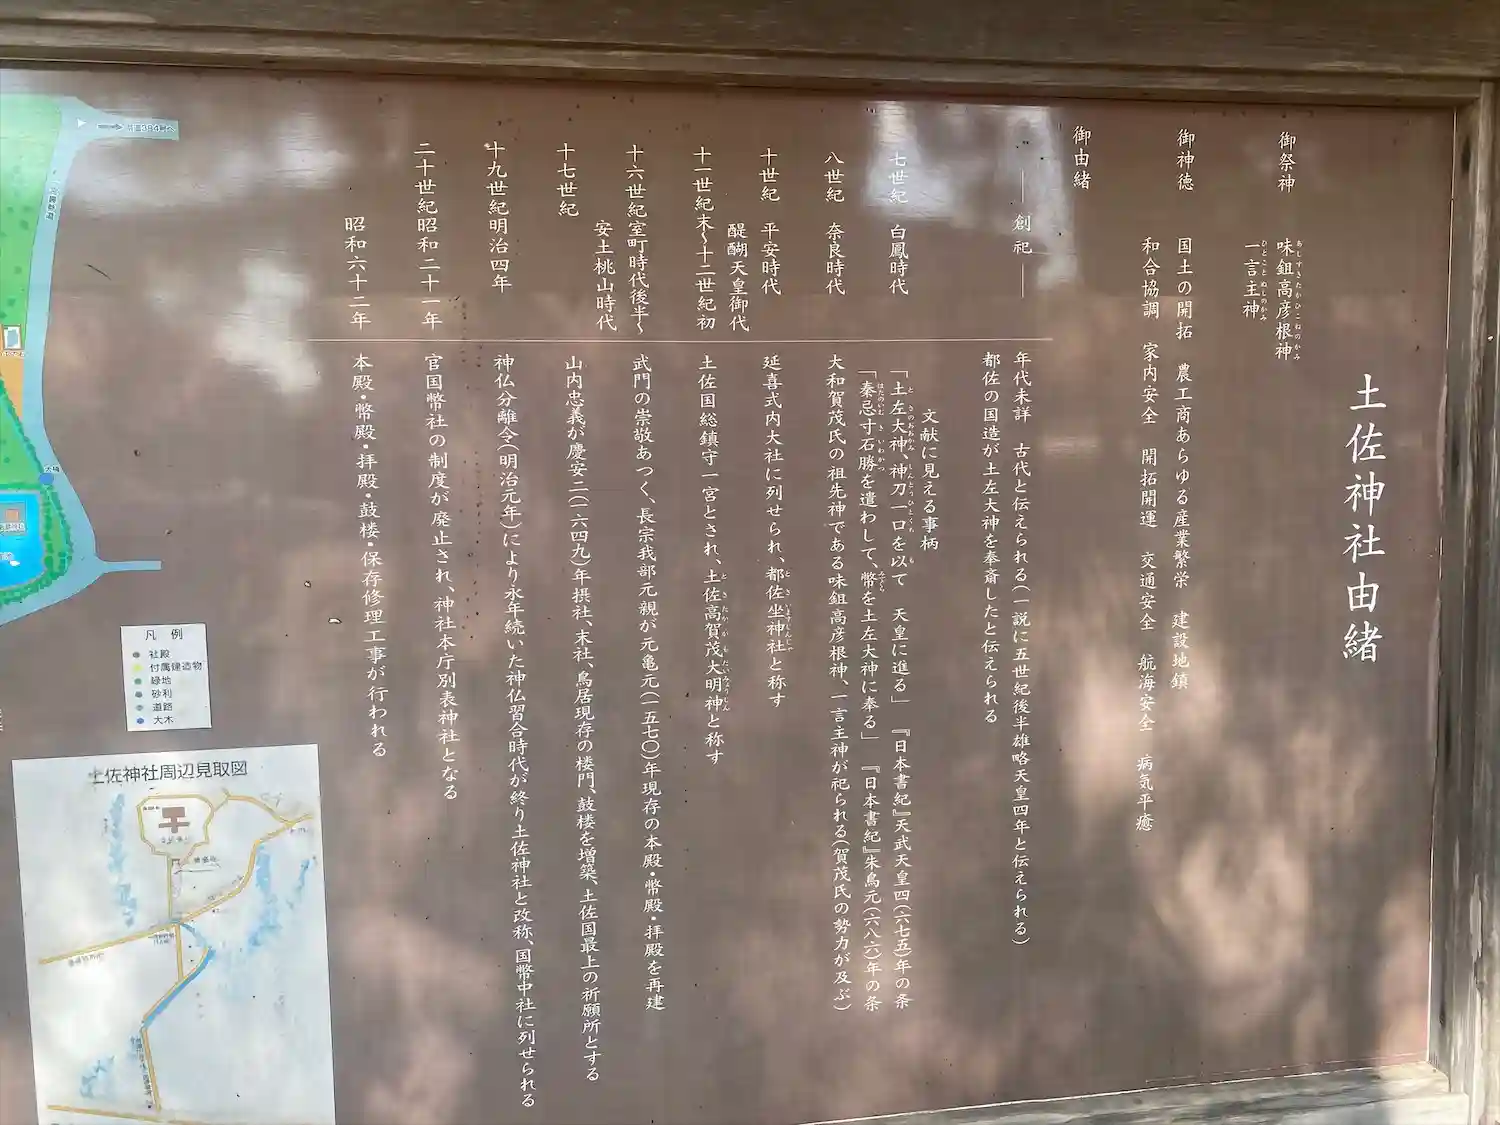 土佐神社由緒
御祭神　味鉏高彦根神
あじすきたかひこねのかみ
一言主神
ひとことぬしのかみ
御神徳　国土の開拓　農工商あらゆる産業繁栄　建設地鎮
和合協調　家内安全　開拓開運　交通安全　航海安全　病気平癒
御由緒
―創祀―　年代未詳　古代と伝えられる(一説に五世紀後半雄略天皇四年と伝えられる)
都佐の国造が土左大神を奉斎したと伝えられる
文献に見える事柄
七世紀　白鳳時代　「土左大神、神刀一口を以て　天皇に進る」　『日本書紀』天武天皇四(六七五)年の条
「秦忌寸石勝を遣わして、幣を土左大神に奉る」　『日本書紀』朱鳥元(六八六)年の条
八世紀　奈良時代　大和賀茂氏の祖先神である味鉏高彦根神、一言主神が祀られる(賀茂氏の勢力が及ぶ)
十世紀　平安時代　延喜式内大社に列せられ、都佐坐神社と称す
醍醐天皇御代
十一世紀末〜十二世紀初　土佐国総鎮守一宮とされ、土佐高賀茂大明神と称す
十六世紀室町時代後半〜　武門の崇敬あつく、長宗我部元親が元亀元(一五七〇)年現存の本殿・幣殿・拝殿を再建
安土桃山時代
十七世紀　山内忠義が慶安二(一六四九)年摂社、末社、鳥居現存の楼門、鼓楼を増築、土佐国最上の祈願所とする
十九世紀明治四年　神仏分離令(明治元年)により永年続いた神仏習合時代が終り土佐神社と改称、国幣中社に列せられる
二十世紀昭和二十一年　官国幣社の制度が廃止され、神社本庁別表神社となる
昭和六十二年　本殿・幣殿・拝殿・鼓楼・保存修理工事が行われる
凡例
社殿
付属建造物
緑地
砂利
道路
大木
土佐神社周辺見取図